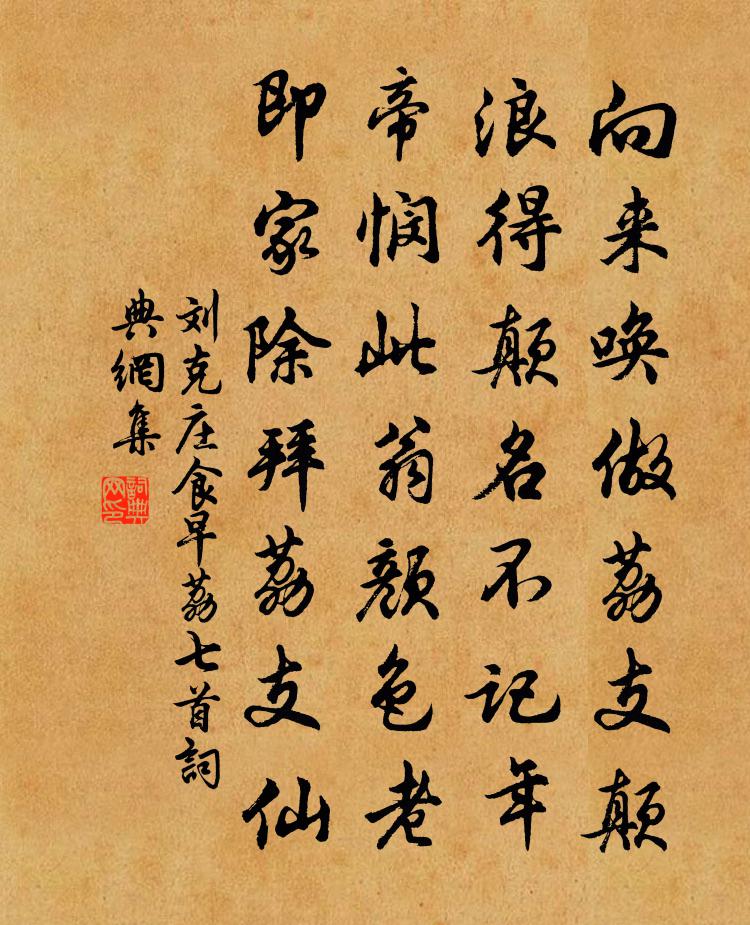 向来唤做荔支颠
浪得颠名不记年
帝悯此翁颜色老
即家除拜荔支仙
刘克庄食早荔七首詞
典網集
詞典
网印